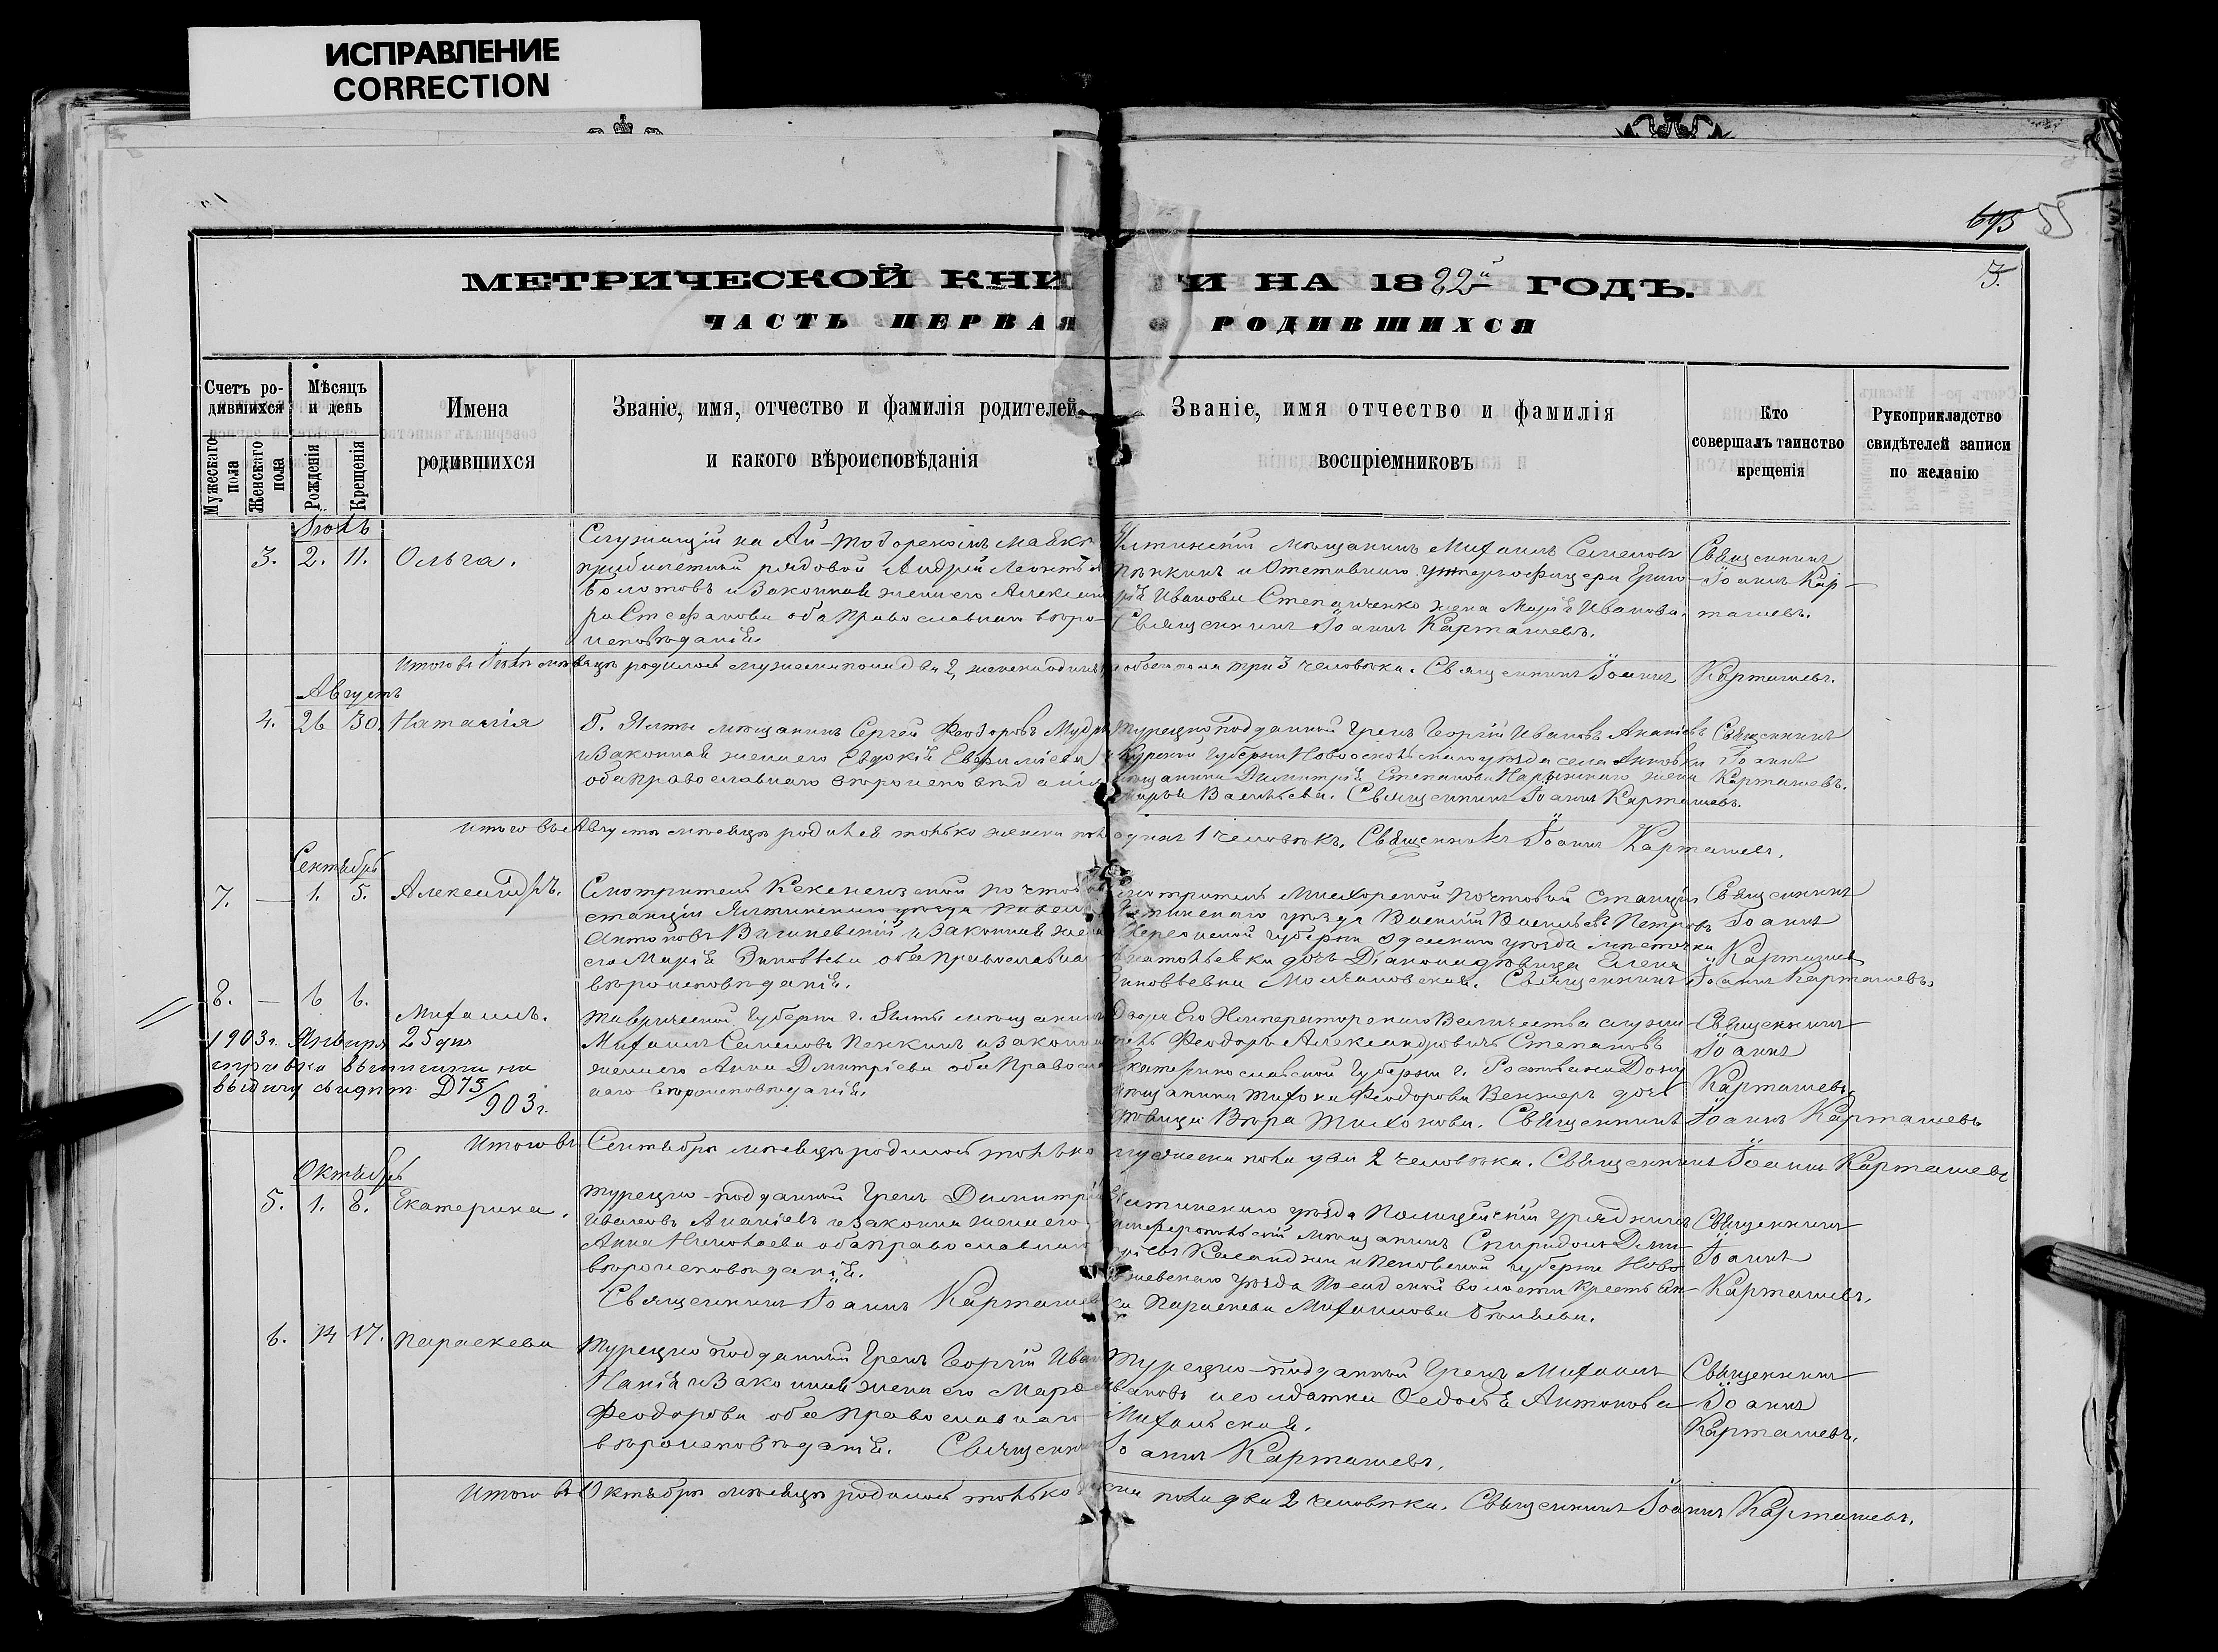 ИСПРАВЛЕНИЕ
CORRECTION
695 55
МЕТРИЧЕСКОЙ КНИГИ НА 1882й ГОДЪ.
3.
ЧАСТЬ ПЕРВАЯ О РОДИВШИХСЯ
Счетъ родившихся
Мужескаго пола
Женскаго пола
Мѣсяцъ и день
Рожденія
Крещенія
Имена родившихся
Званіе, имя, отчество и фамилія родителей
и какого вѣроисповѣданія
Званіе, имя отчество и фамилія
воспріемниковъ
Кто
совершалъ таинство
крещенія
Рукоприкладство
свидѣтелей записи
по желанію
3. 2. 11. Ольга.
Служащій на Ай-Тодорскомъ маяке
рядовой Андрей Леонтьев
Болотовъ и законная жена его Александ
ра Стефанова оба православнаго вѣро
исповѣданія.
Ялтинскій мѣщанинъ Михаилъ Семеновъ
Пенкинъ и Отставнаго унтеръ-офицера Григо
рія Иванова Степаненко жена Марія Иванова.
Священникъ Іоаннъ Карташевъ.
Священникъ
Іоаннъ Кар-
ташевъ.
Итого въ мѣсяцѣ родилось мужеска пола два 2, женска одинъ, обоего пола три 3 человѣка. Священникъ Іоаннъ Карташевъ.
Августъ
4. 26 30. Наталія
Г. Ялты мѣщанинъ Сергей Феодоровъ
и законная жена его Евдокія
оба православнаго вѣроисповѣданія
Турецко-подданный Грекъ Георгій Ивановъ Ананіевъ
Курской Губерніи Новооскольскаго уѣзда села
мѣщанина Димитрія Степанова жена
Марія Васильева. Священникъ Іоаннъ Карташевъ.
Священникъ
Іоаннъ
Карташевъ.
Итого въ Августѣ мѣсяцѣ родился только женска пола одинъ 1 человѣкъ. Священникъ Іоаннъ Карташевъ.
Сентябрь
7. — 1. 5. Александръ.
Смотритель Кекенеизской почтовой
станціи Ялтинскаго уѣзда Павелъ
Антоновъ Вишневскій и законная жена
его Марія Зиновьева оба православна
вѣроисповѣданія.
Смотритель Мисхорской почтовой станціи
Ялтинскаго уѣзда Василій Васильевъ Петровъ
Херсонской губерніи Одесскаго уѣзда мѣстечка
дочь Елена
Зиновьевна Молчановская. Священникъ Іоаннъ Карташевъ.
Священникъ
Іоаннъ
Карташевъ
8. — 6 6. Михаилъ.
Таврической Губерніи г. Ялты мѣщанинъ
Михаилъ Семеновъ Пенкинъ и законная
жена его Анна Димитріева оба Православ
наго вѣроисповѣданія.
Двора Его Императорскаго Величества служи
тель Феодоръ Александровичъ Степановъ
Екатеринославской Губерніи г. Ростова на Дону
мѣщанина Тихона Феодорова дочь
дѣвица Вѣра Тихонова. Священникъ Іоаннъ Карташевъ
Священникъ
Іоаннъ
Карташевъ
1903 г. Января 25 дня
справка выписана на
выдачу свидѣт. Д75/903 г.
Итого въ Сентябрѣ мѣсяцѣ родилось только мужеска пола два 2 человѣка. Священникъ Іоаннъ Карташевъ
Октябрь
5. 1. 8. Екатерина.
Турецко-подданный Грекъ Димитрій
Ивановъ Ананіевъ и законна жена его
Анна Николаева оба православнаго
вѣроисповѣданія.
Священникъ Іоаннъ Карташевъ
Ялтинскаго уѣзда Полицейскій урядникъ
Симферопольскій мѣщанинъ Спиридонъ Дими-
тріевъ и Псковской губерніи Ново
ржевскаго уѣзда волости крестьян
ка Параскева Михаилова
Священникъ
Іоаннъ
Карташевъ.
6. 14 17. Параскева
Турецко подданный Грекъ Георгій Иван
и законная жена его
Феодорова оба православнаго
вѣроисповѣданія. Священникъ Іоаннъ Карташевъ.
Турецко-подданный Грекъ Михаилъ
Ивановъ и солдатка Федосія Антонова
Священникъ
Іоаннъ
Карташевъ.
Итого въ Октябрѣ мѣсяцѣ родилось только женска пола два 2 человѣка. Священникъ Іоаннъ Карташевъ.